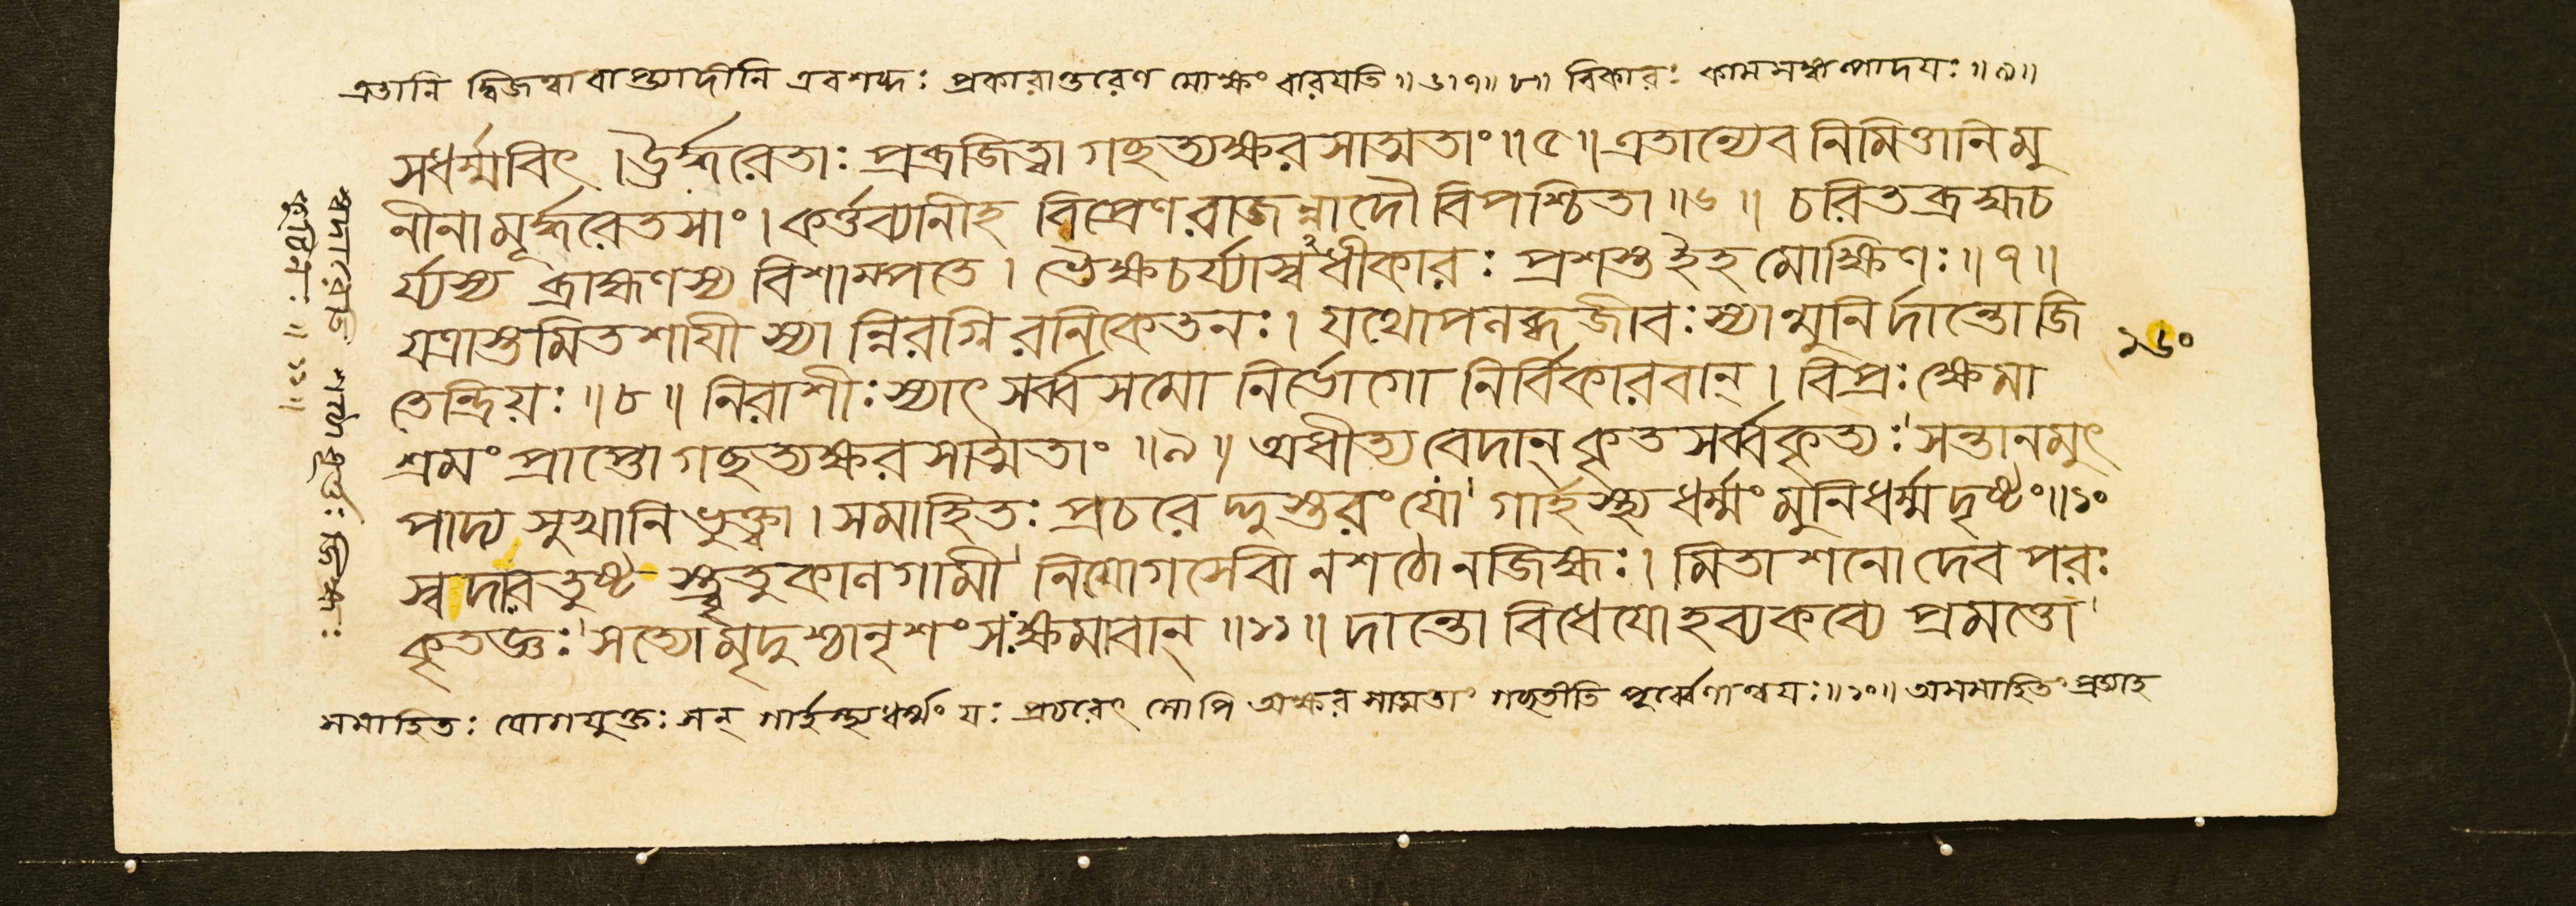 এতানি দ্বিজত্বাবাপ্ত্যাদীনি এবশব্দঃ প্রকারান্তরেণ মোক্ষং বারযতি ॥ ৬। ৭॥ ৮॥ বিকারঃ কামসঙ্কল্পাদযঃ ॥ ৯॥
সধর্ম্মবিৎ । ঊর্দ্ধরেতাঃ প্রব্রজিত্বা গচ্ছত্যক্ষরসাত্মতাং ॥ ৫ ॥ এতান্যেব নিমিত্তানি মু
নীনামূর্দ্ধরেতসাং । কর্ত্তব্যানীহ বিপ্রেণ রাজন্নাদৌ বিপশ্চিতা ॥ ৬ ॥ চরিতব্রহ্মচ
র্য্যস্য ব্রাহ্মণস্য বিশাম্পতে । ভৈক্ষচর্য্যাস্বধীকারঃ প্রশস্ত ইহ মোক্ষিণঃ ॥ ৭ ॥
যত্রাস্তমিতশাযী স্যান্নিরগ্নিরনিকেতনঃ । যথোপলব্ধজীবঃ স্যান্মুনির্দান্তো জি
তেন্দ্রিয়ঃ ॥ ৮ ॥ নিরাশীঃ স্যাৎ সর্ব্বসমো নির্ভোগো নির্বিকারবান্ । বিপ্রঃ ক্ষেমা
শ্রমং প্রাপ্তো গচ্ছত্যক্ষরসাত্মতাং ॥ ৯ ॥ অধীত্য বেদান্ কৃতসর্ব্বকৃত্যঃ সন্তানমুৎ
পাদ্য সুখানি ভুক্ত্বা । সমাহিতঃ প্রচরেদ্দুস্তরং যো গার্হস্থ্যধর্ম্মং মুনিধর্ম্মদৃষ্টং ॥ ১০
স্বদারতুষ্ট স্ত্বৃতুকালগামী নিযোগসেবী নশঠো নজিহ্মঃ । মিতাশনো দেবপরঃ
কৃতজ্ঞঃ সত্যো মৃদুশ্চানৃশংসঃ ক্ষমাবান্ ॥ ১১ ॥ দান্তো বিধেযো হব্যকব্যে প্রমত্তো
সমাহিতঃ যোগযুক্তঃ সন্ গার্হস্থ্যধর্ম্মং যঃ প্রচরেৎ সোপি অক্ষরসাত্মতাং গচ্ছতীতি পূর্ব্বেণান্বযঃ ॥ ১০॥ অসমাহিতং প্রত্যাহ
১৬০